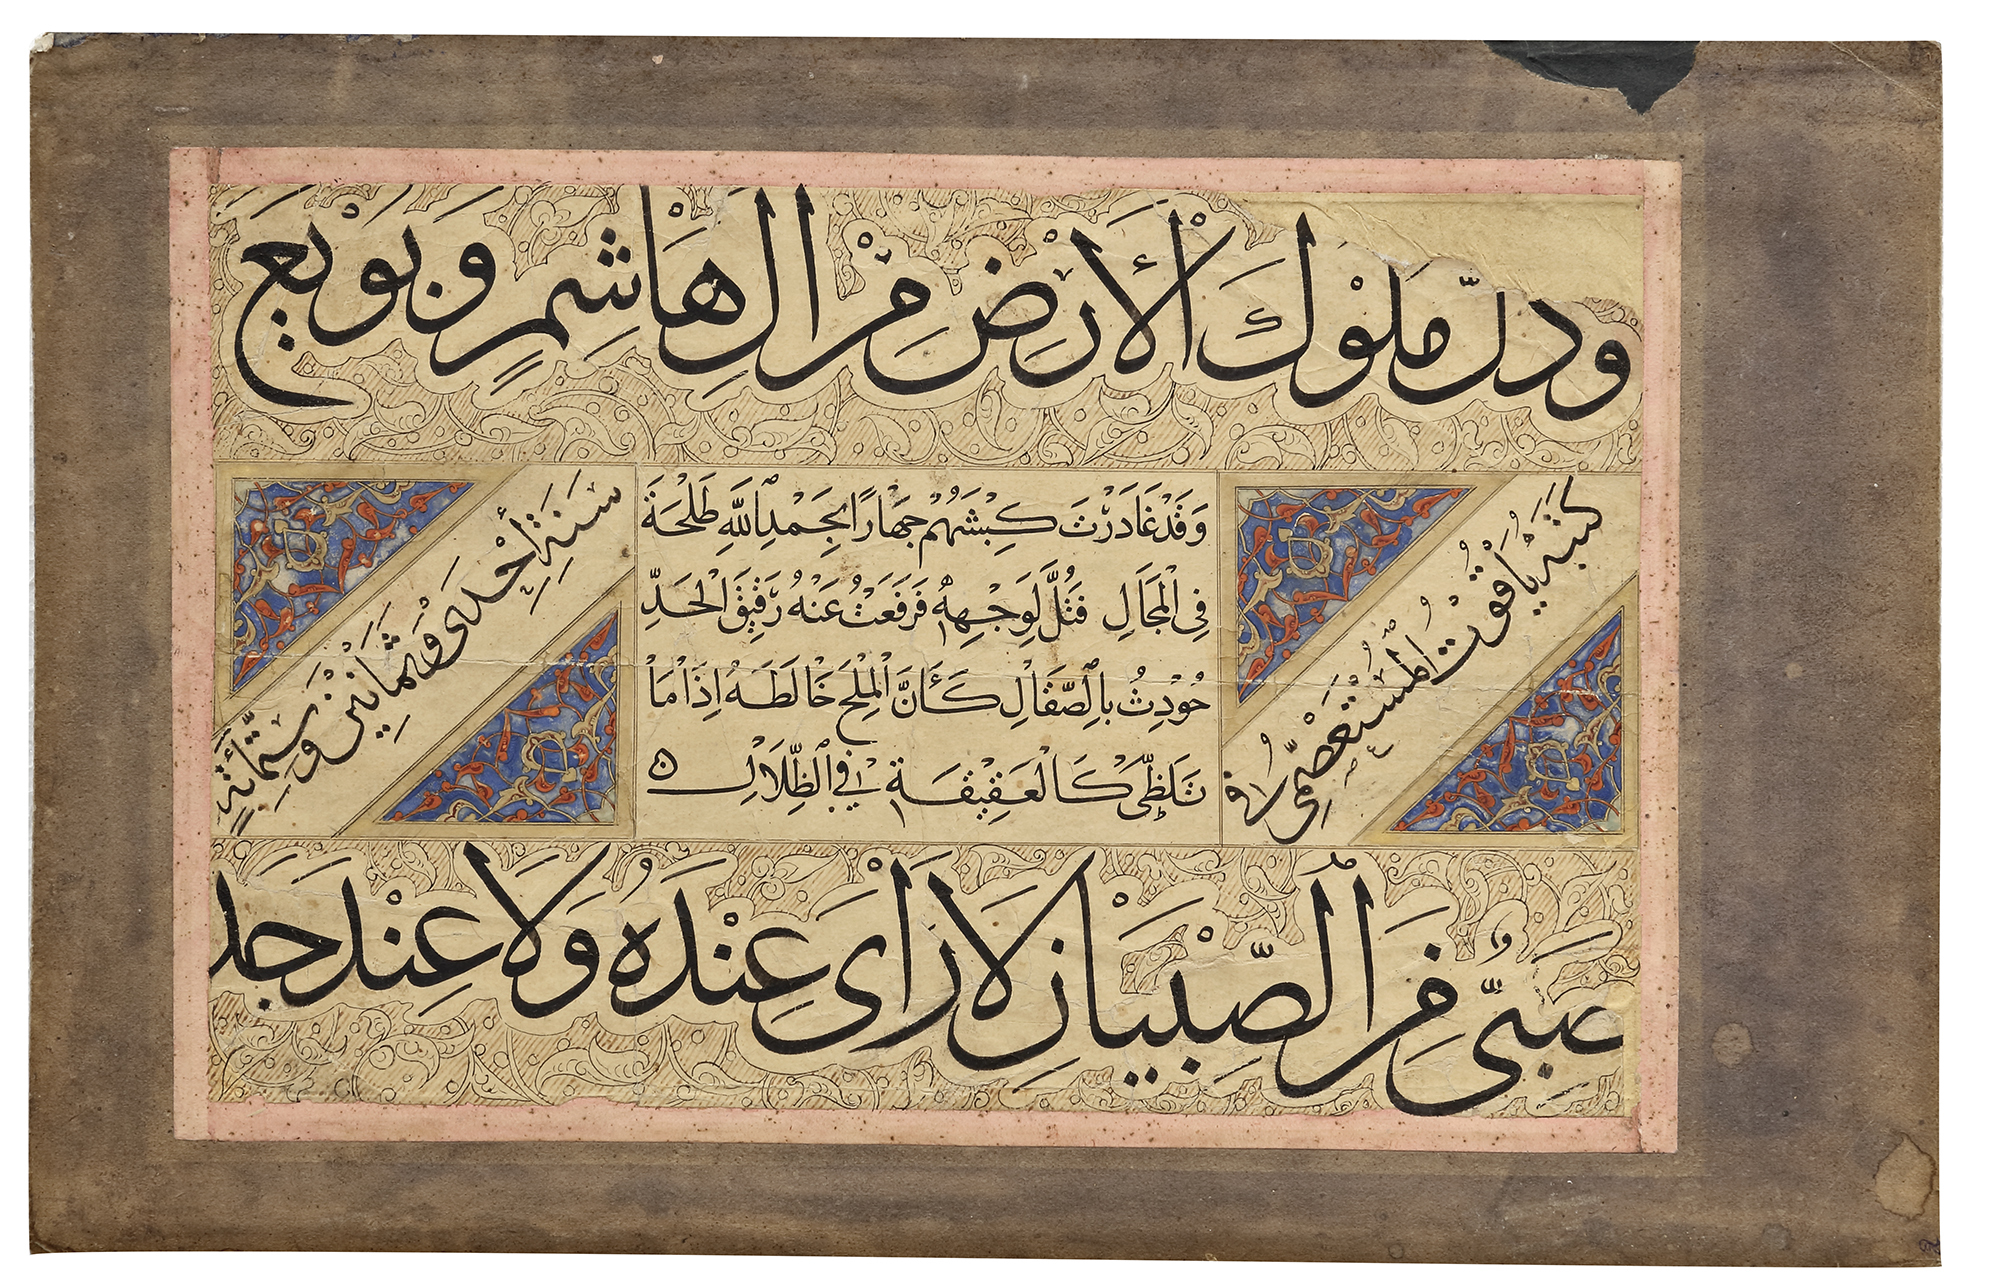 وَدلّ مُلُوْكَ الْأَرْضِ مِنْ آلِ هَاشِمٍ وَبُوْيِعَ
كتبه يَاقُوْتُ الْمُسْتَعْصِمِيُّ في
وَقَدْ غَادَرْتَ كَبْشَهُمْ جِهَارًا بِحَمْدِ اللَّهِ طَلْحَةَ
فِي الْمَجَالِ فَتُلَّ لِوَجْهِهِ فَرَفَعْتُ عَنْهُ رَقِيْقَ الْحَدِّ
حُوْدِثَ بِالصِّقَالِ كَأَنَّ الْمِلْحَ خَالَطَهُ اِذَا مَا
تَلَظَّى كَالْعَقِيْقَةِ فِي الظِّلَالِ ه
سَنَةِ أَحْدَى وَثَمَانِيْنَ وَسِتِّمِائَةٍ
صَبِيٌّ مِنَ الصِّبْيَانِ لَا رَأْيَ عِنْدَهُ وَلَا عِنْدَ جَد